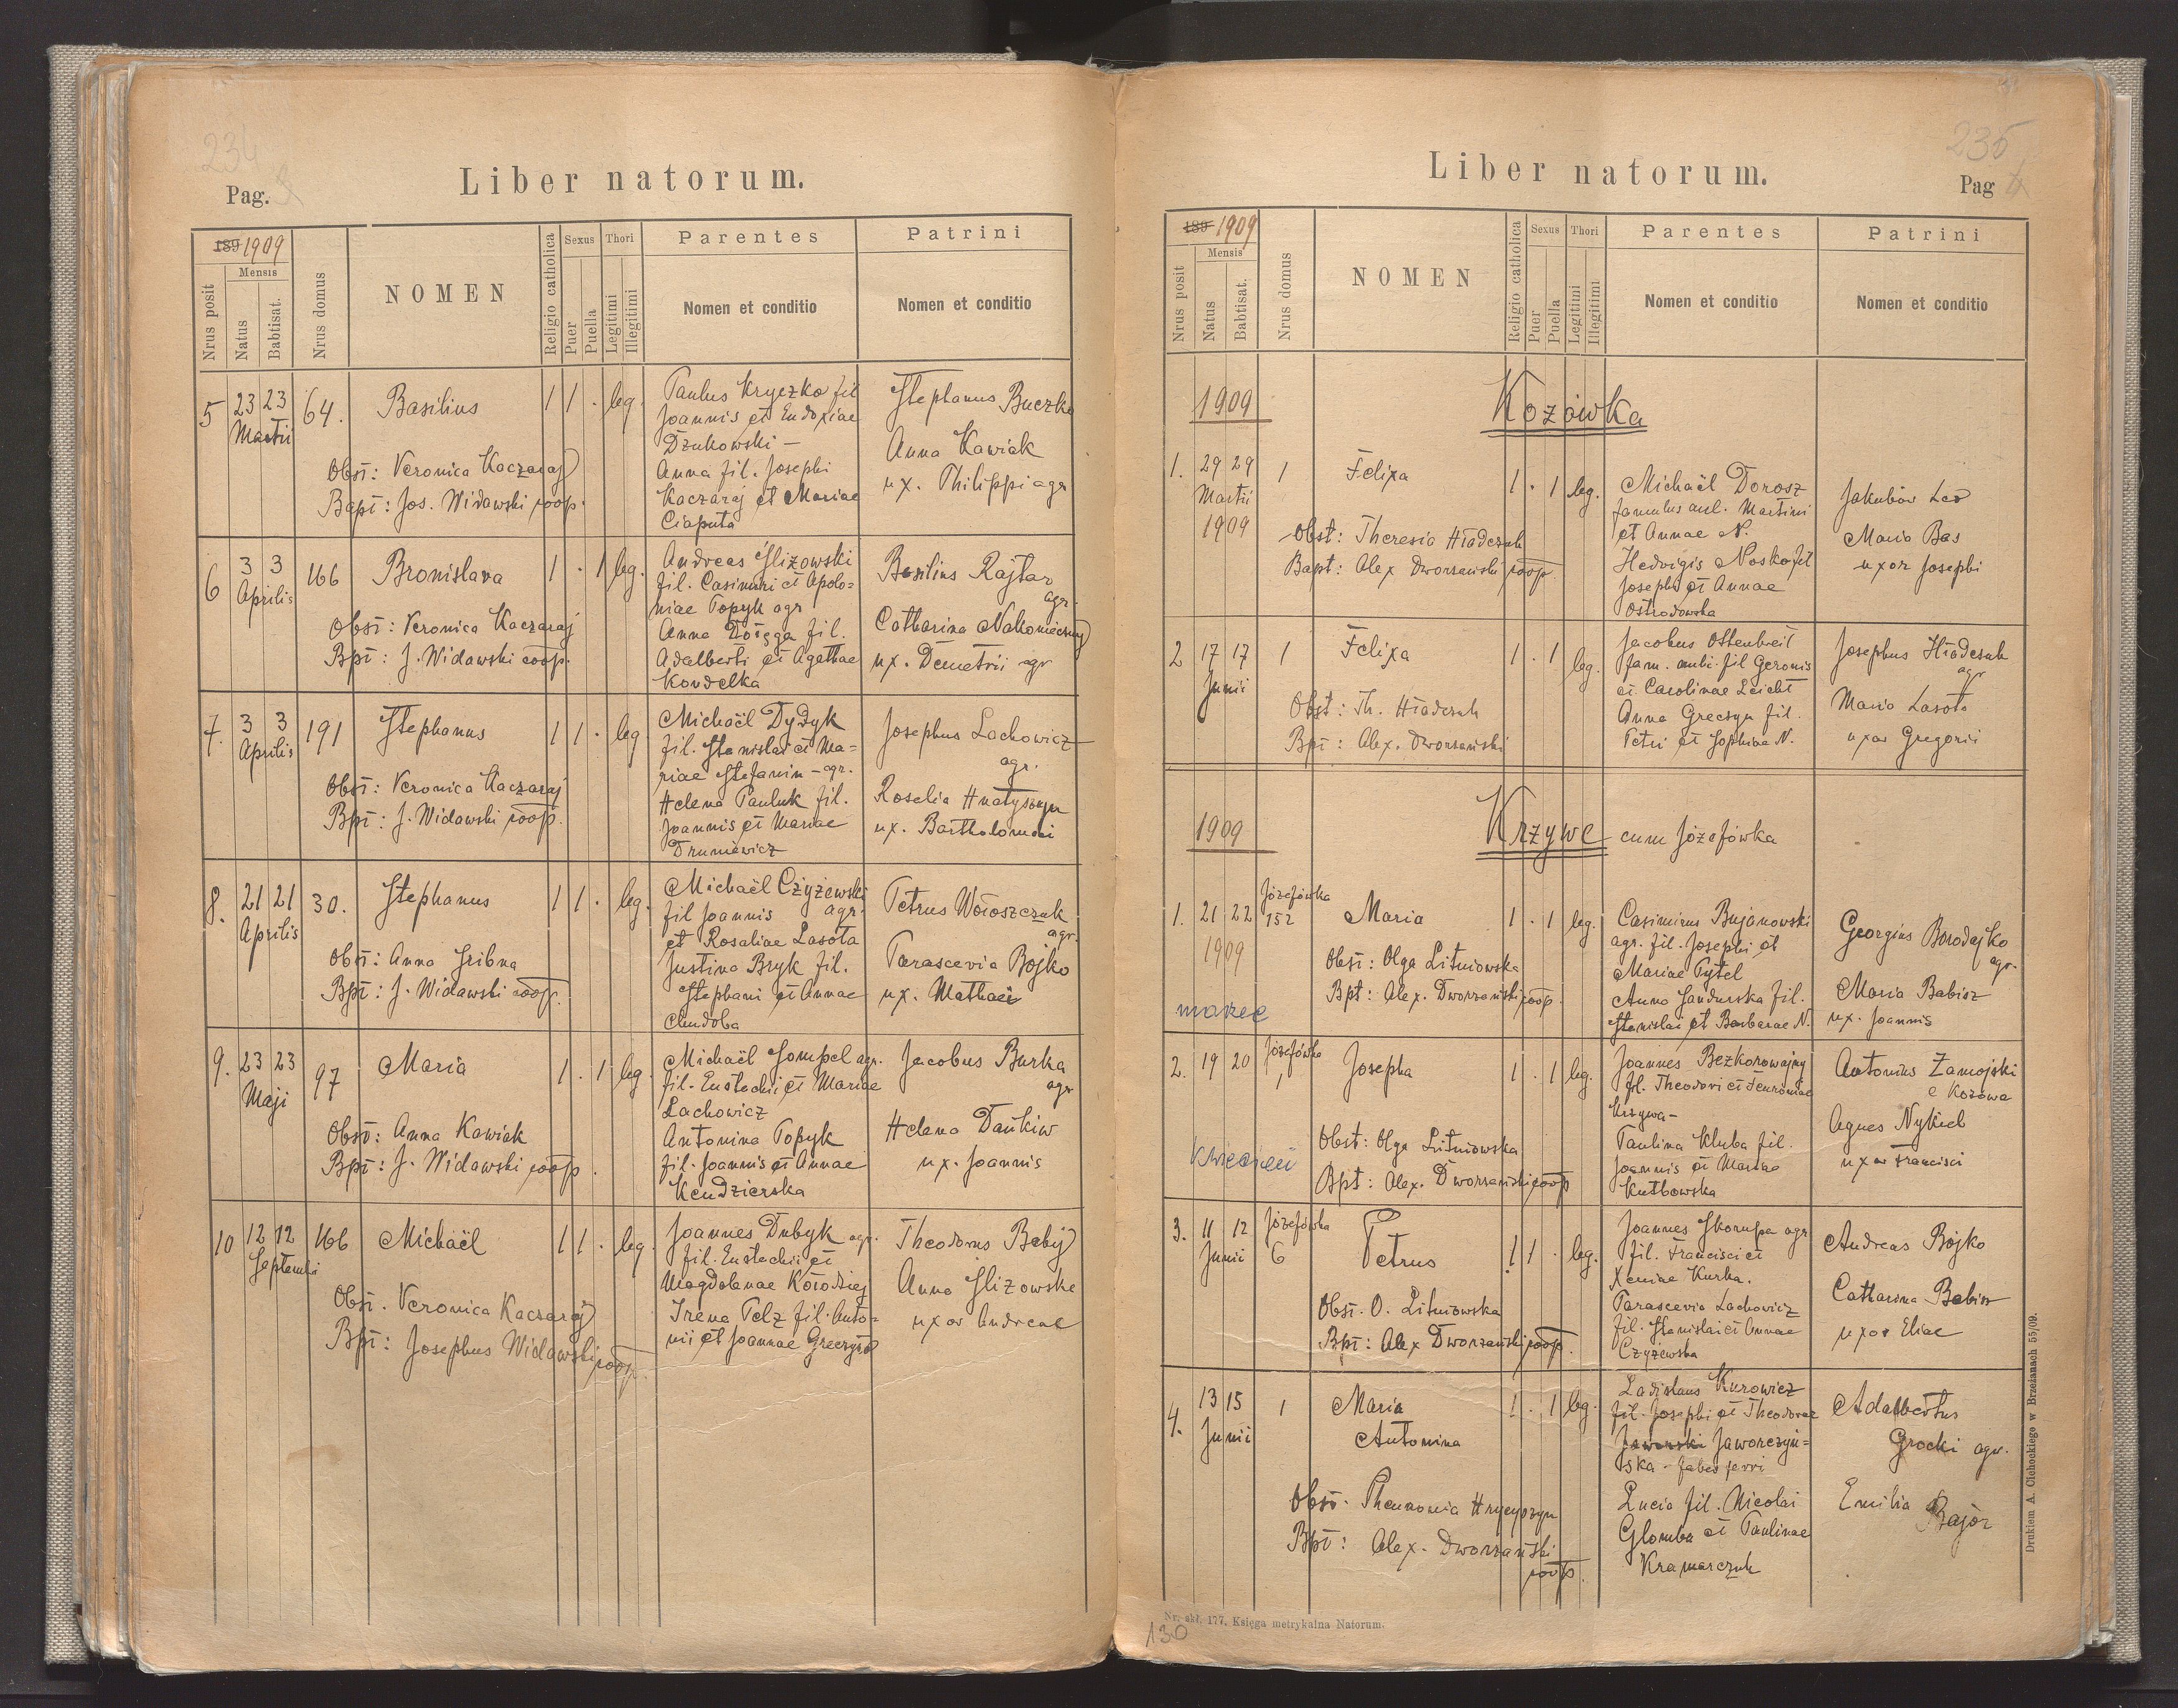 234
Pag.
Liber natorum.
189 1909
Nrus posit
Mensis
Natus
Babtisat.
Nrus domus
NOMEN
Religio catholica
Sexus
Puer
Puella
Thori
Legitimi
Illegitimi
Parentes
Nomen et conditio
Patrini
Nomen et conditio
5 23 23 Martii 64. Basilius 1 1 . leg.
Obst: Veronica Kaczaraj
Bapt: Jos. Widawski coop.
Paulus Kryczko fil
Joannis et Eudoxiae
Dzukowski —
Anna fil. Josephi
Kaczaraj et Mariae
Ciaputa
Stephanus Buczko
Anna Kawiak
ux. Philippi agr
6 3 3 Aprilis 166 Bronislava 1 . 1 leg.
Obst: Veronica Kaczaraj
Bpt: J. Widawski coop.
Andreas Slizowski
fil. Casimiri et Apolo=
niae Topyk agr
Anna Dołęga fil.
Adalberti et Agathae
Kondelka
Basilius Rajtar
agr.
Catharina Nakonieczny
ux. Demetrii agr
7. 3 3 Aprilis 191 Stephanus 1 1 . leg
Obst: Veronica Kaczaraj
Bpt: J. Widawski coop.
Michaël Dydyk
fil. Stanislai et Ma=
riae Stefanin - agr.
Helena Pauluk fil.
Joannis et Mariae
Druniewicz
Josephus Lachowicz
agr.
Rosalia Hnatyszyn
ux. Bartholomaei
8. 21 21 Aprilis 30. Stephanus 1 1 . leg.
Obst: Anna Gribna
Bpt: J. Widawski coop.
Michaël Czyżewski
fil Joannis agr.
et Rosaliae Lasota
Justina Bryk fil.
Stephani et Annae
Chudoba
Petrus Wołoszczuk
agr.
Parascevia Bojko
ux. Mathaei
9. 23 23 Maji 97 Maria 1 . 1 leg.
Obst: Anna Kawiak
Bpt: J. Widawski coop.
Michaël Sompel agr.
fil. Eustachii et Mariae
Lachowicz
Antonina Topyk
fil. Joannis et Annae
Kendzierska
Jacobus Burka
agr
Helena Dańkiw
ux. Joannis
10 12 12 Septembri 166 Michaël 1 1 . leg.
Obst. Veronica Kaczaraj
Bpt: Josephus Widawski coop.
Joannes Dubyk agr.
fil. Eustachii et
Magdalenae Kołodziej
Irena Pelz fil. Anto=
nii et Joannae Greczyn
Theodorus Babij
Anna Slizowska
uxor Andreae
235
Pag
Liber natorum.
189 1909
Nrus posit
Mensis
Natus
Babtisat.
Nrus domus
NOMEN
Religio catholica
Sexus
Puer
Puella
Thori
Legitimi
Illegitimi
Parentes
Nomen et conditio
Patrini
Nomen et conditio
1909 Kozówka
1. 29 29 Martii 1909 1 Felixa 1 . 1 leg.
Obst: Theresia Hładczuk
Bapt: Alex Dworzański coop
Michaël Dorosz
famulus aul. Martini
et Annae N.
Hedvigis Nosko fil
Josephi et Annae
Ostrodowska
Jakubów Leo
Maria Bas
uxor Josephi
2 17 17 Junii 1 Felixa 1 . 1 leg.
Obst: Th. Hładczuk
Bpt: Alex. Dworzański
Jacobus Ostenbreit
fam. aulic. fil Geronis
et Carolinae Leicht
Anna Grecsyn fil.
Petri et Sophiae N.
Josephus Hładczuk
agr
Maria Lasota
uxor Gregorii
1909 Krzywe cum Józefówka
1. 21 22 1909 marzec Józefówka 152 Maria 1 . 1 leg.
Obst: Olga Litniowska
Bpt: Alex. Dworzański coop.
Casimirus Bujanowski
agr. fil. Josephi et
Mariae Pytel
Anna Sandurska fil.
Stanislai et Barbarae N.
Georgius Borodajko
agr.
Maria Babisz
ux. Joannis
2. 19 20 kwiecień Józefówka 1 Josepha 1 . 1 leg.
Obst: Olga Litniowska
Bpt: Alex. Dworzański coop
Joannes Bezkorowajny
fil. Theodori et Feuroniae
Krzywa-
Paulina Kluba fil.
Joannis et Mariae
Kutkowska
Antonius Zamojski
e Kozowa
Agnes Nykiel
uxor Francisci
3. 11 12 Junii Józefówka 6 Petrus 1 1 . leg.
Obst. O. Litniowska
Bpt: Alex Dworzański coop.
Joannes Skorupa agr
fil. Francisci et
Xeniae Kurka.
Parascevia Lachowicz
fil. Stanislai et Annae
Czyżewska
Andreas Bojko
Catharina Babisz
uxor Eliae
4. 13 15 Junii 1 Maria 1 . 1 leg.
Antonina
Obst. Pheuronia Hrycyszyn
Bpt: Alex. Dworzański
coop.
Ladislaus Kurowicz
fil. Josephi et Theodorae
Jaworski Jaworczyń=
ska - faber ferri
Lucia fil. Nicolai
Glomba et Paulinae
Kramarczuk
Adalbertus
Grocki agr.
Emilia
Bajor
Drukiem A. Cichockiego w Brzeżanach 55/09.
Nr. skł. 177. Księga metrykalna Natorum.
130